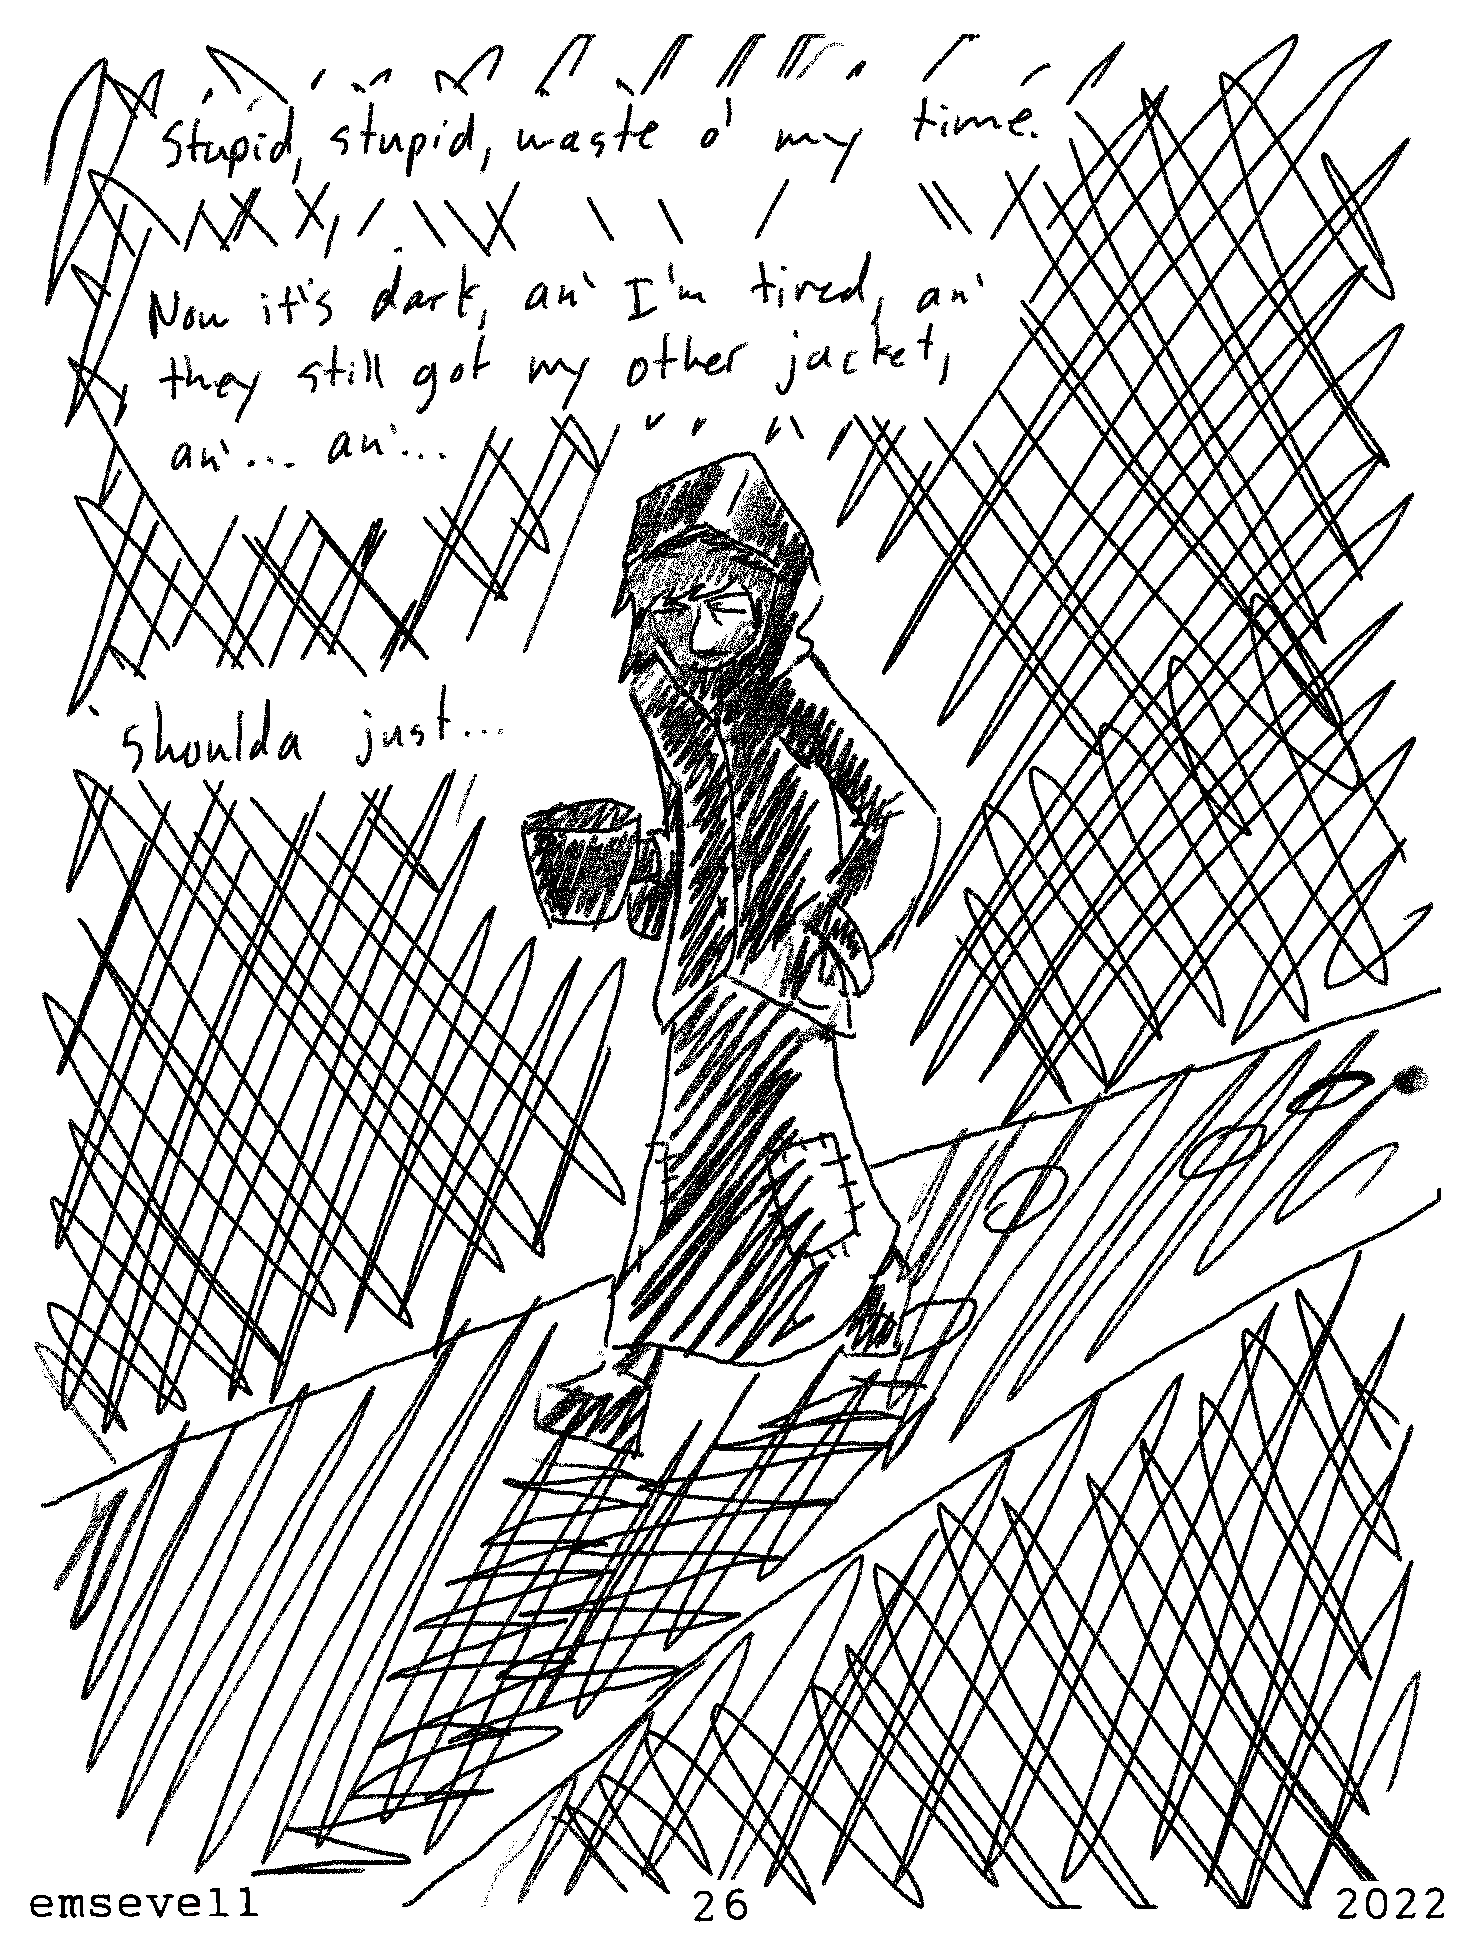 Stupid, stupid, waste o' my time.
Now it's dark, an' I'm tired, an'
they still got my other jacket,
an'... an'...
shoulda just...
emsevell 26 2022